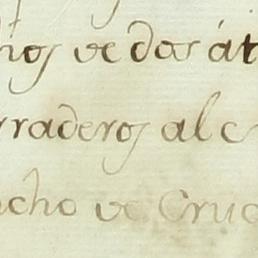 hos vedor át
rraderos al c
cho ve Cruc